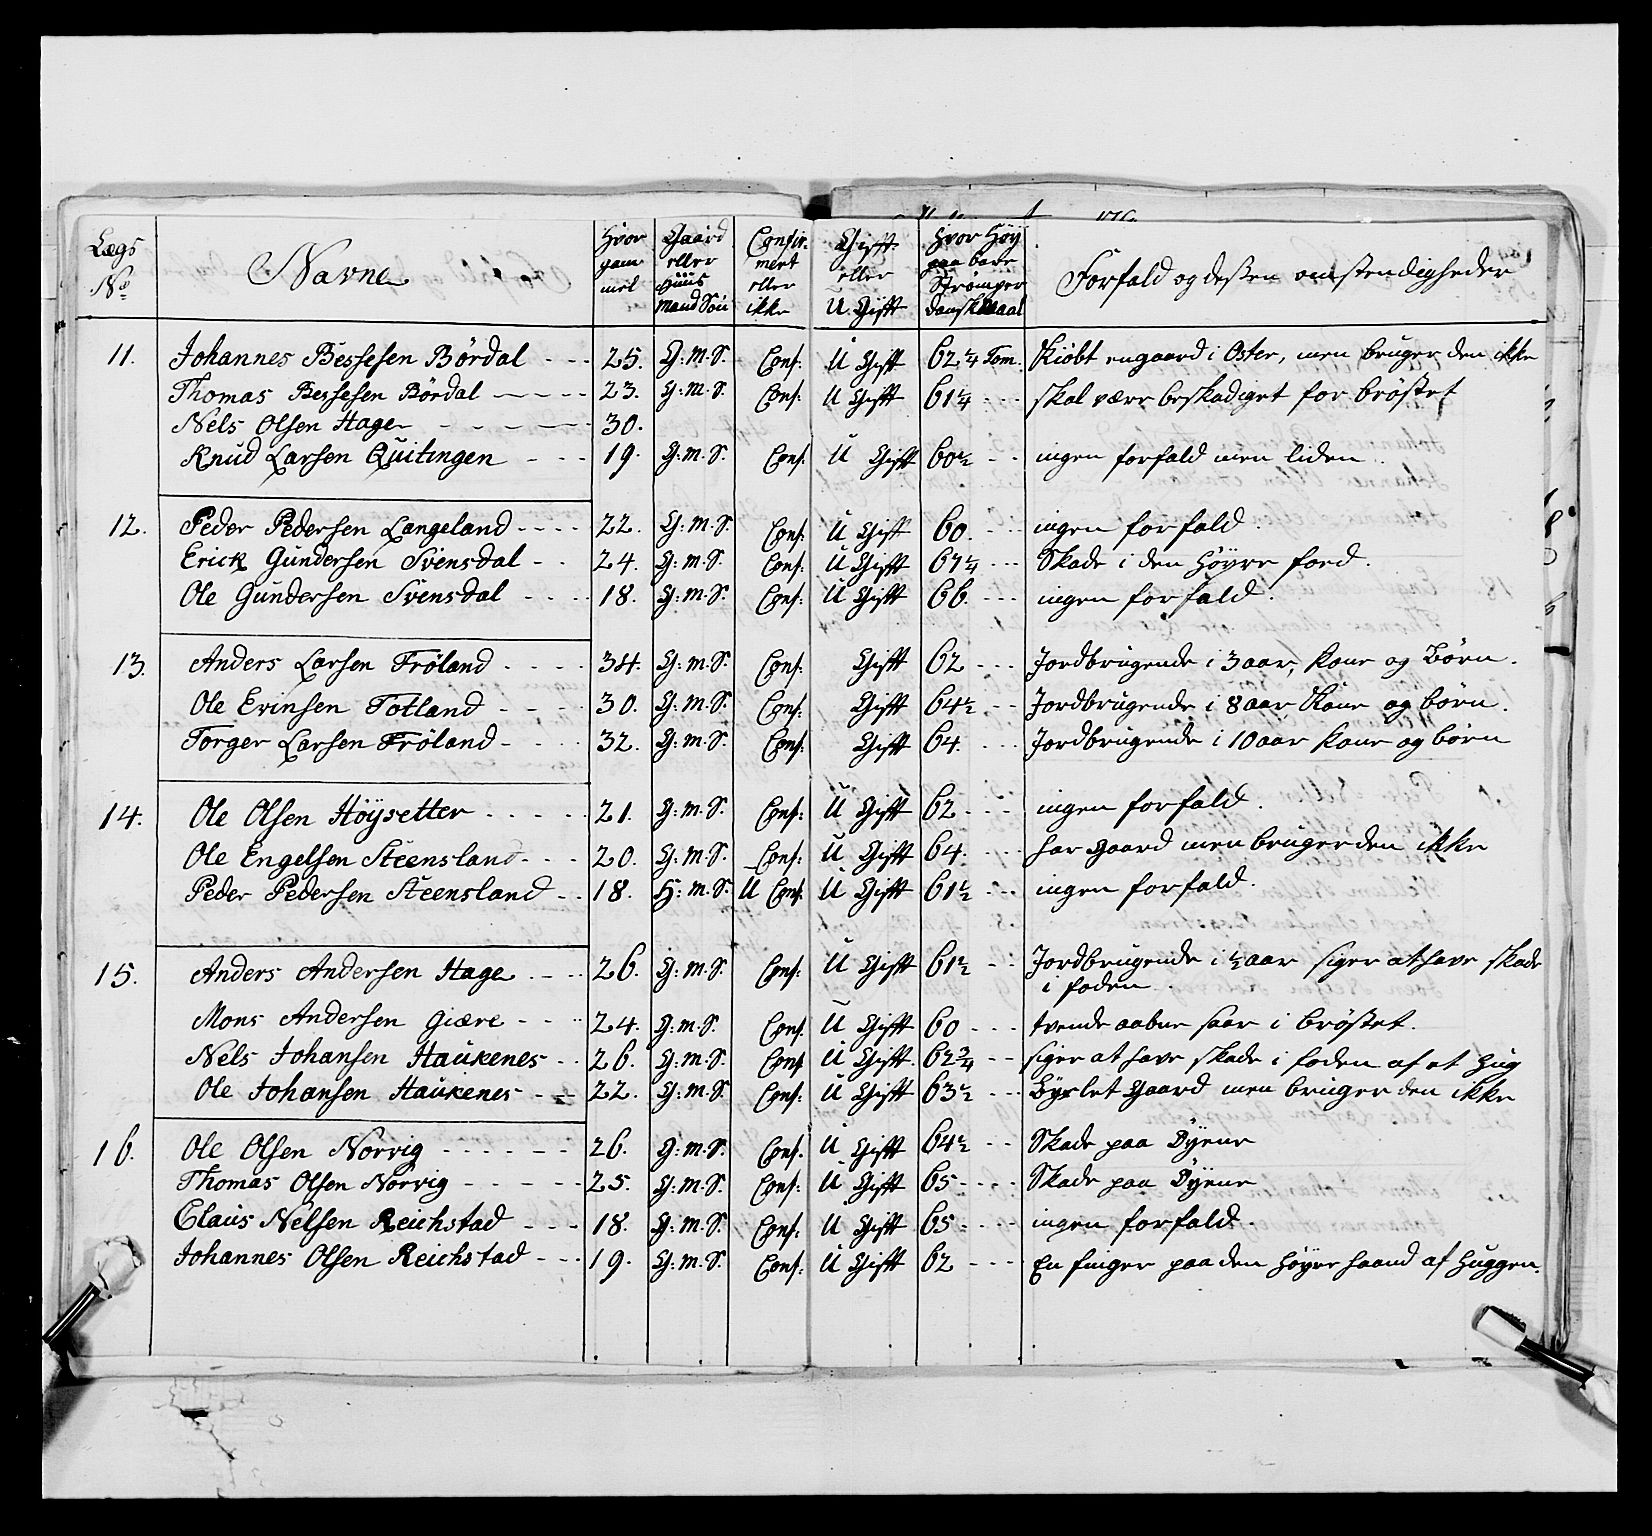 Lægs No | Navne | Hvor gam mel | Gaard eller Huus Mand Søn | Confir mert eller ikke | Gift eller U. Gift | Hvor Høy paa bare Strømper dansk Maal | Forfald og dessen omstendigheder
11. Johannes Bessesen Bördal - - - 25. G: M: S. Conf: U Gift 62 1/4 Tom. Kiöbt en gaard i Oster, men bruger den ikke
Thomas Bessesen Bördal - - - - 23. G: M. S. Conf: U Gift 61 1/4 - - - skal være beskadiget for bröstet
Nels Olsen Hage - - - - - 30.
Knud Larsen Quitingen - - - 19. G. M. S. Conf: U Gift 60 1/2 - - - ingen forfald men liden
12. Peder Pedersen Langeland - - - - 22. G: M: S. Conf: U Gift 60. - - - ingen forfald.
Erick Gundersen Svensdal - - 24. G: M. S. Conf: U Gift 67 1/4 - - - Skade i den Höyre foed.
Ole Gundersen Svensdal - - - - 18. G: M. S. Conf: U Gift 66. - - - ingen forfald.
13. Anders Larsen Fröland - - - - 34. G: M. S. Conf: Gift 62 - - - Jordbrugende i 3 aar, kone og Börn.
Ole Erinsen Totland - - - - 30. G: M. S. Conf: Gift 64 1/2 - - Jordbrugende i 8 aar Kone og börn.
Torger Larsen Fröland - - - - 32. G: M. S. Conf: Gift 64. - - - Jordbrugende i 10 aar kone og börn
14. Ole Olsen Höysetter - - - - - 21. G: M. S. Conf: U Gift 62 - - - ingen forfald.
Ole Engelsen Steensland - - - 20. G: M. S. Conf: U Gift 64. - - - har gaard men bruger den ikke
Peder Pedersen Steensland - - 18. H: M. S. U Conf. U Gift 61 1/2 - - - ingen forfald.
15. Anders Andersen Hage - - - - 26. G: M: S. Conf: U Gift 61 1/2 - - - Jordbrugende i 1/2 aar siger at have skade
i foden.
Mons Andersen Giære - - - 24. G. M. S. Conf. U Gift 60 - - - tvende aabne saar i bröstet.
Nels Johansen Haukenes - - 26. G: M. S. Conf U Gift. 62 3/4 - - siger at have skade i foden af et Hug
Ole Johansen Haukenes - - - 22. G: M. S. Conf: U Gift 63 1/2 - - - Gaard men bruger den ikke
16. Ole Olsen Norvig - - - - - - 26. G: M. S. Conf. U Gift 64 1/2 - - Skade paa Öyene
Thomas Olsen Norvig - - - - - 25. G: M. S. Conf: U Gift 65 - - - - Skade paa Öyene
Claus Nelsen Reichstad - - - 18. G: M. S. Conf: U Gift 65 - - - - ingen forfald.
Johannes Olsen Reichstad - - - 19. G: M. S. Conf: U Gift 62 - - - - En finger paa den höyre haand af huggen.